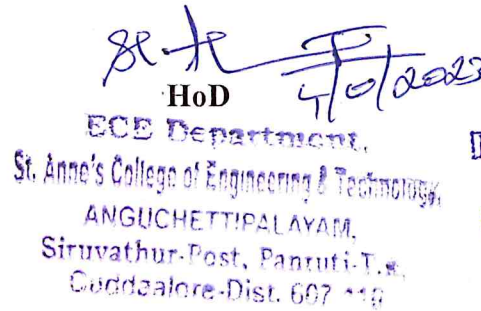 HoD
ECE Department,
St. Anne's College of Engineering & Technology,
ANGUCHETTIPALAYAM,
Siruvathur-Post, Panruti-T.K.
Cuddalore-Dist. 607